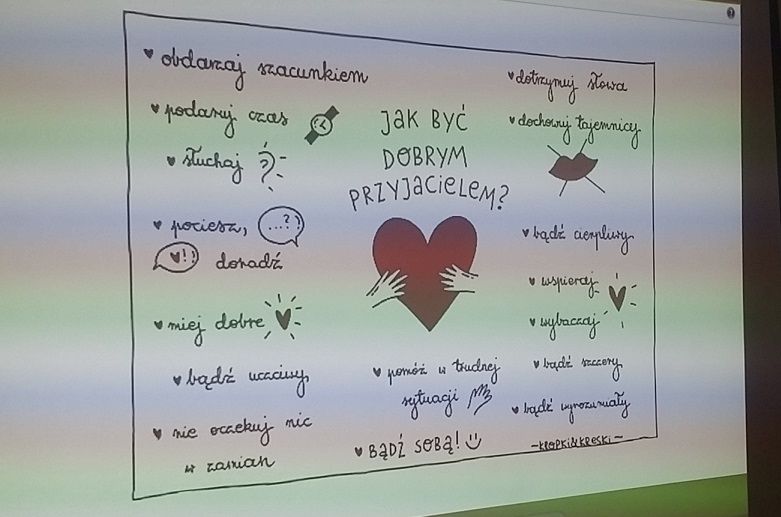 JAK BYĆ
DOBRYM
PRZYJACIELEM?
obdarzaj szacunkiem
podaruj czas
słuchaj
pociesz, ...?
♥!! doradź
miej dobre
bądź uczciwy
nie oczekuj nic
w zamian
pomóż w trudnej
sytuacji
BĄDŹ SOBĄ!
dotrzymuj słowa
dochowuj tajemnicy
bądź cierpliwy
wspieraj
wybaczaj
bądź szczery
bądź wyrozumiały
~KROPKI&KRESKI~